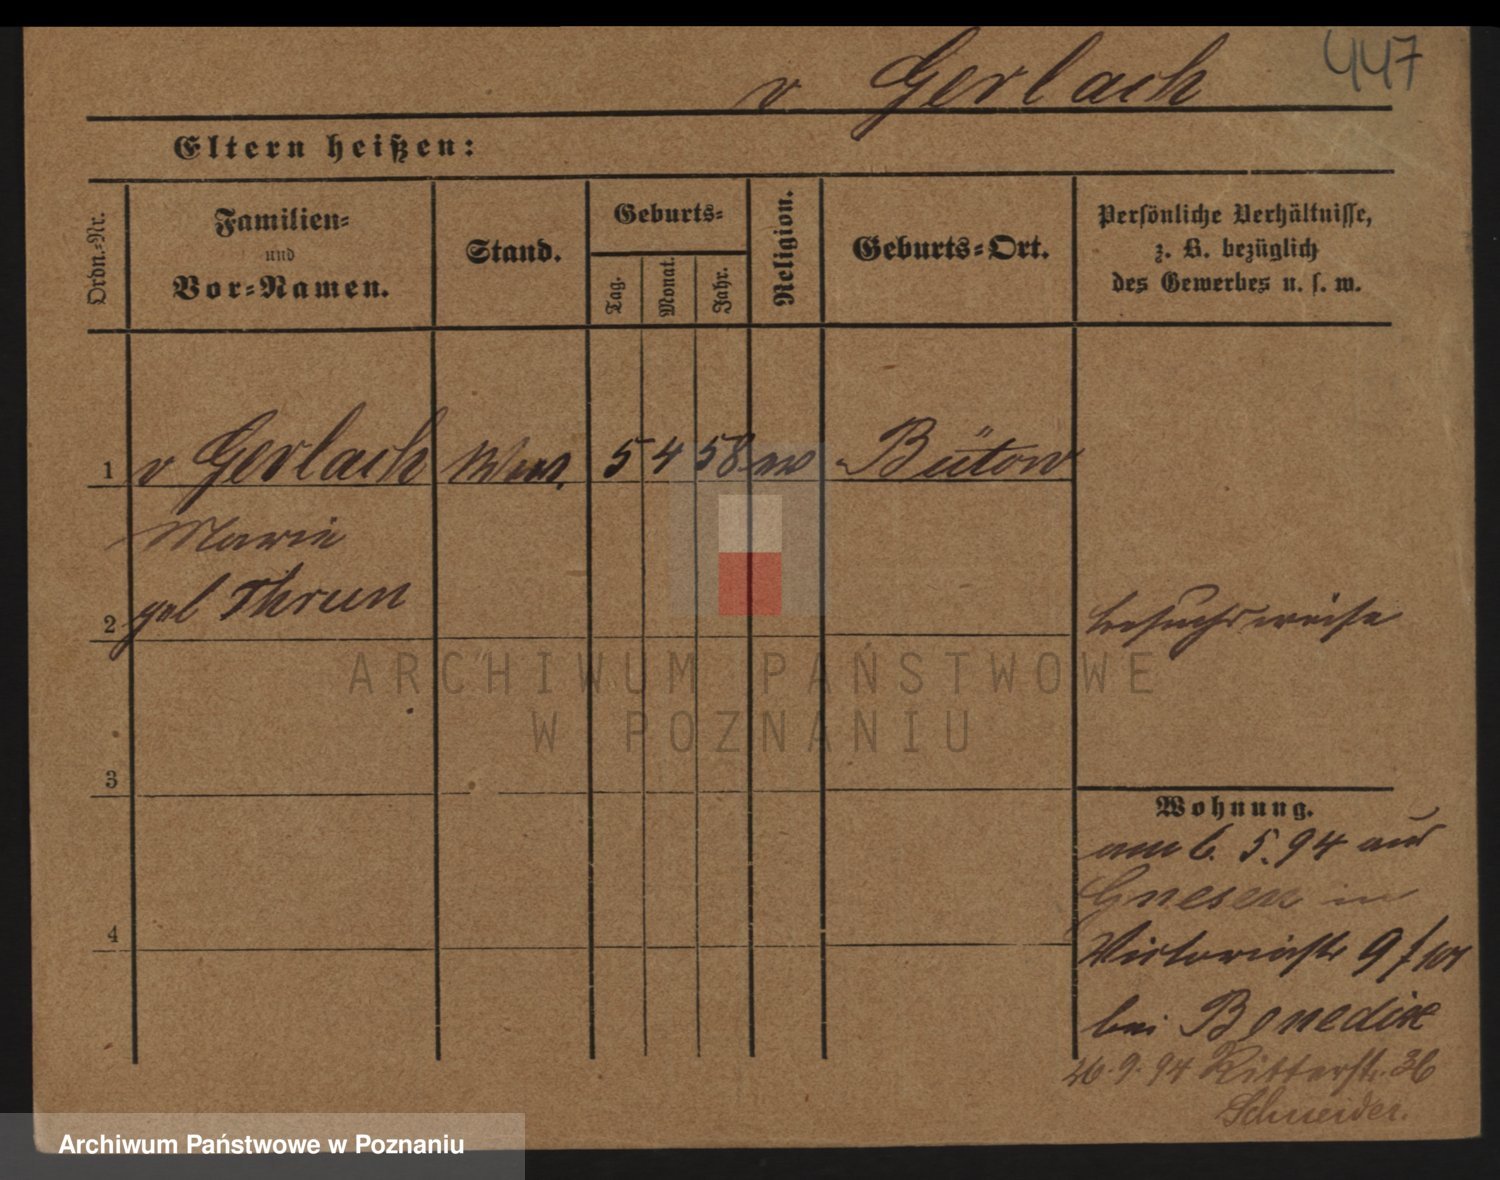 447
v Gerlach
Eltern heißen:
Ordn.-Nr.
Familien-
und
Vor-Namen.
Stand.
Geburts-
Tag.
Monat.
Jahr.
Religion.
Geburts-Ort.
Persönliche Verhältnisse,
z. B. bezüglich
des Gewerbes u. s. w.
1 v Gerlach Wwe. 5 4 58 ev Bütow
Marie
2 geb Thrun
besuchsweise
ARCHIWUM PAŃSTWOWE
W POZNANIU
3
Wohnung.
am 6. 5. 94 aus
Gnesen in
4
Victoriastr 9
bei Benedix
26. 9. 94 Ritterstr. 36
Schneider.
Archiwum Państwowe w Poznaniu